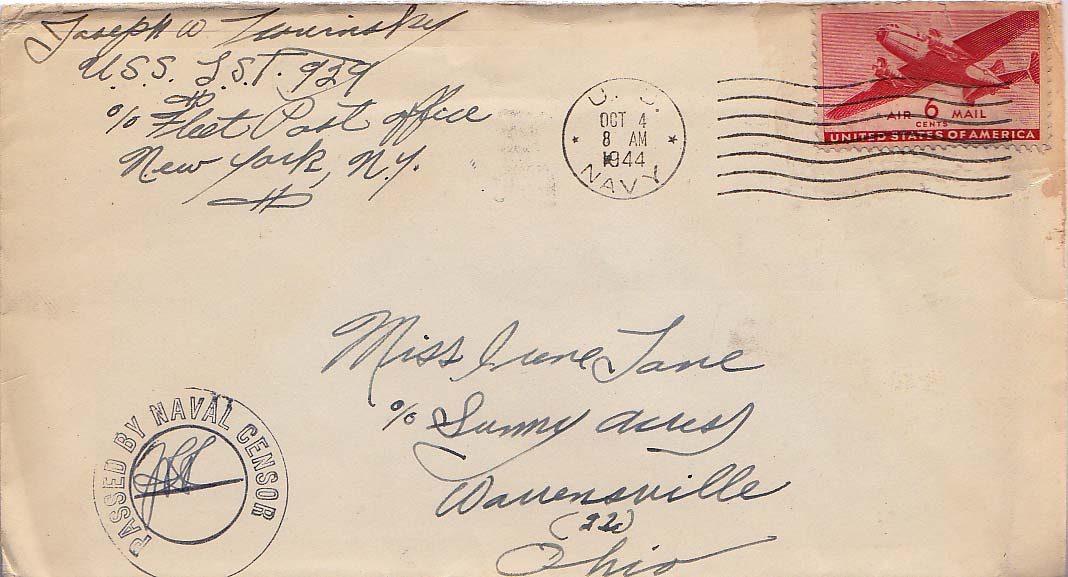 Joseph W
U.S.S. L.S.T. 929
% Fleet Post Office
New York, N.Y.
U. S.
OCT 4
8 AM
1944
NAVY
AIR 6 MAIL
CENTS
UNITED STATES OF AMERICA
Miss Irene Jane
% Sunny Acres
Warrensville
(22)
Ohio
PASSED BY NAVAL CENSOR